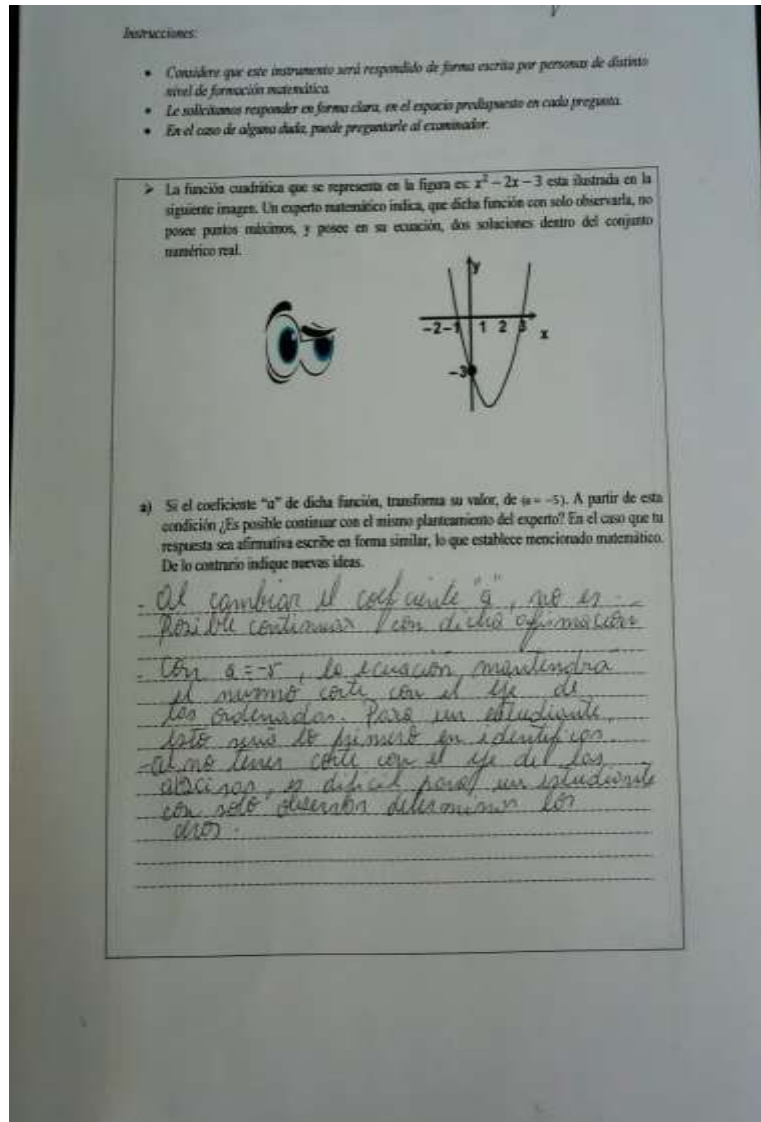 Instrucciones:
• Considere que este instrumento será respondido de forma escrita por personas de distinto
nivel de formación matemática.
• Le solicitamos responder en forma clara, en el espacio predispuesto en cada pregunta.
• En el caso de alguna duda, puede preguntarle al examinador.
➢ La función cuadrática que se representa en la figura es: x² − 2x − 3 esta ilustrada en la
siguiente imagen. Un experto matemático indica, que dicha función con solo observarla, no
posee puntos máximos, y posee en su ecuación, dos soluciones dentro del conjunto
numérico real.
y
−2 −1 1 2 3 x
−3
a) Si el coeficiente “a” de dicha función, transforma su valor, de (a = −5). A partir de esta
condición ¿Es posible continuar con el mismo planteamiento del experto? En el caso que tu
respuesta sea afirmativa escribe en forma similar, lo que establece mencionado matemático.
De lo contrario indique nuevas ideas.
- Al cambiar el coeficiente "a", no es
Posible continuar con dicha afirmación
- Con a = -5, la ecuación mantendra
el mismo corte con el eje de
las ordenadas. Para un estudiante,
esto seria lo primero en identificar
- Al no tener corte con el eje de las
abscisas, es dificil para un estudiante
con solo observar determinar los